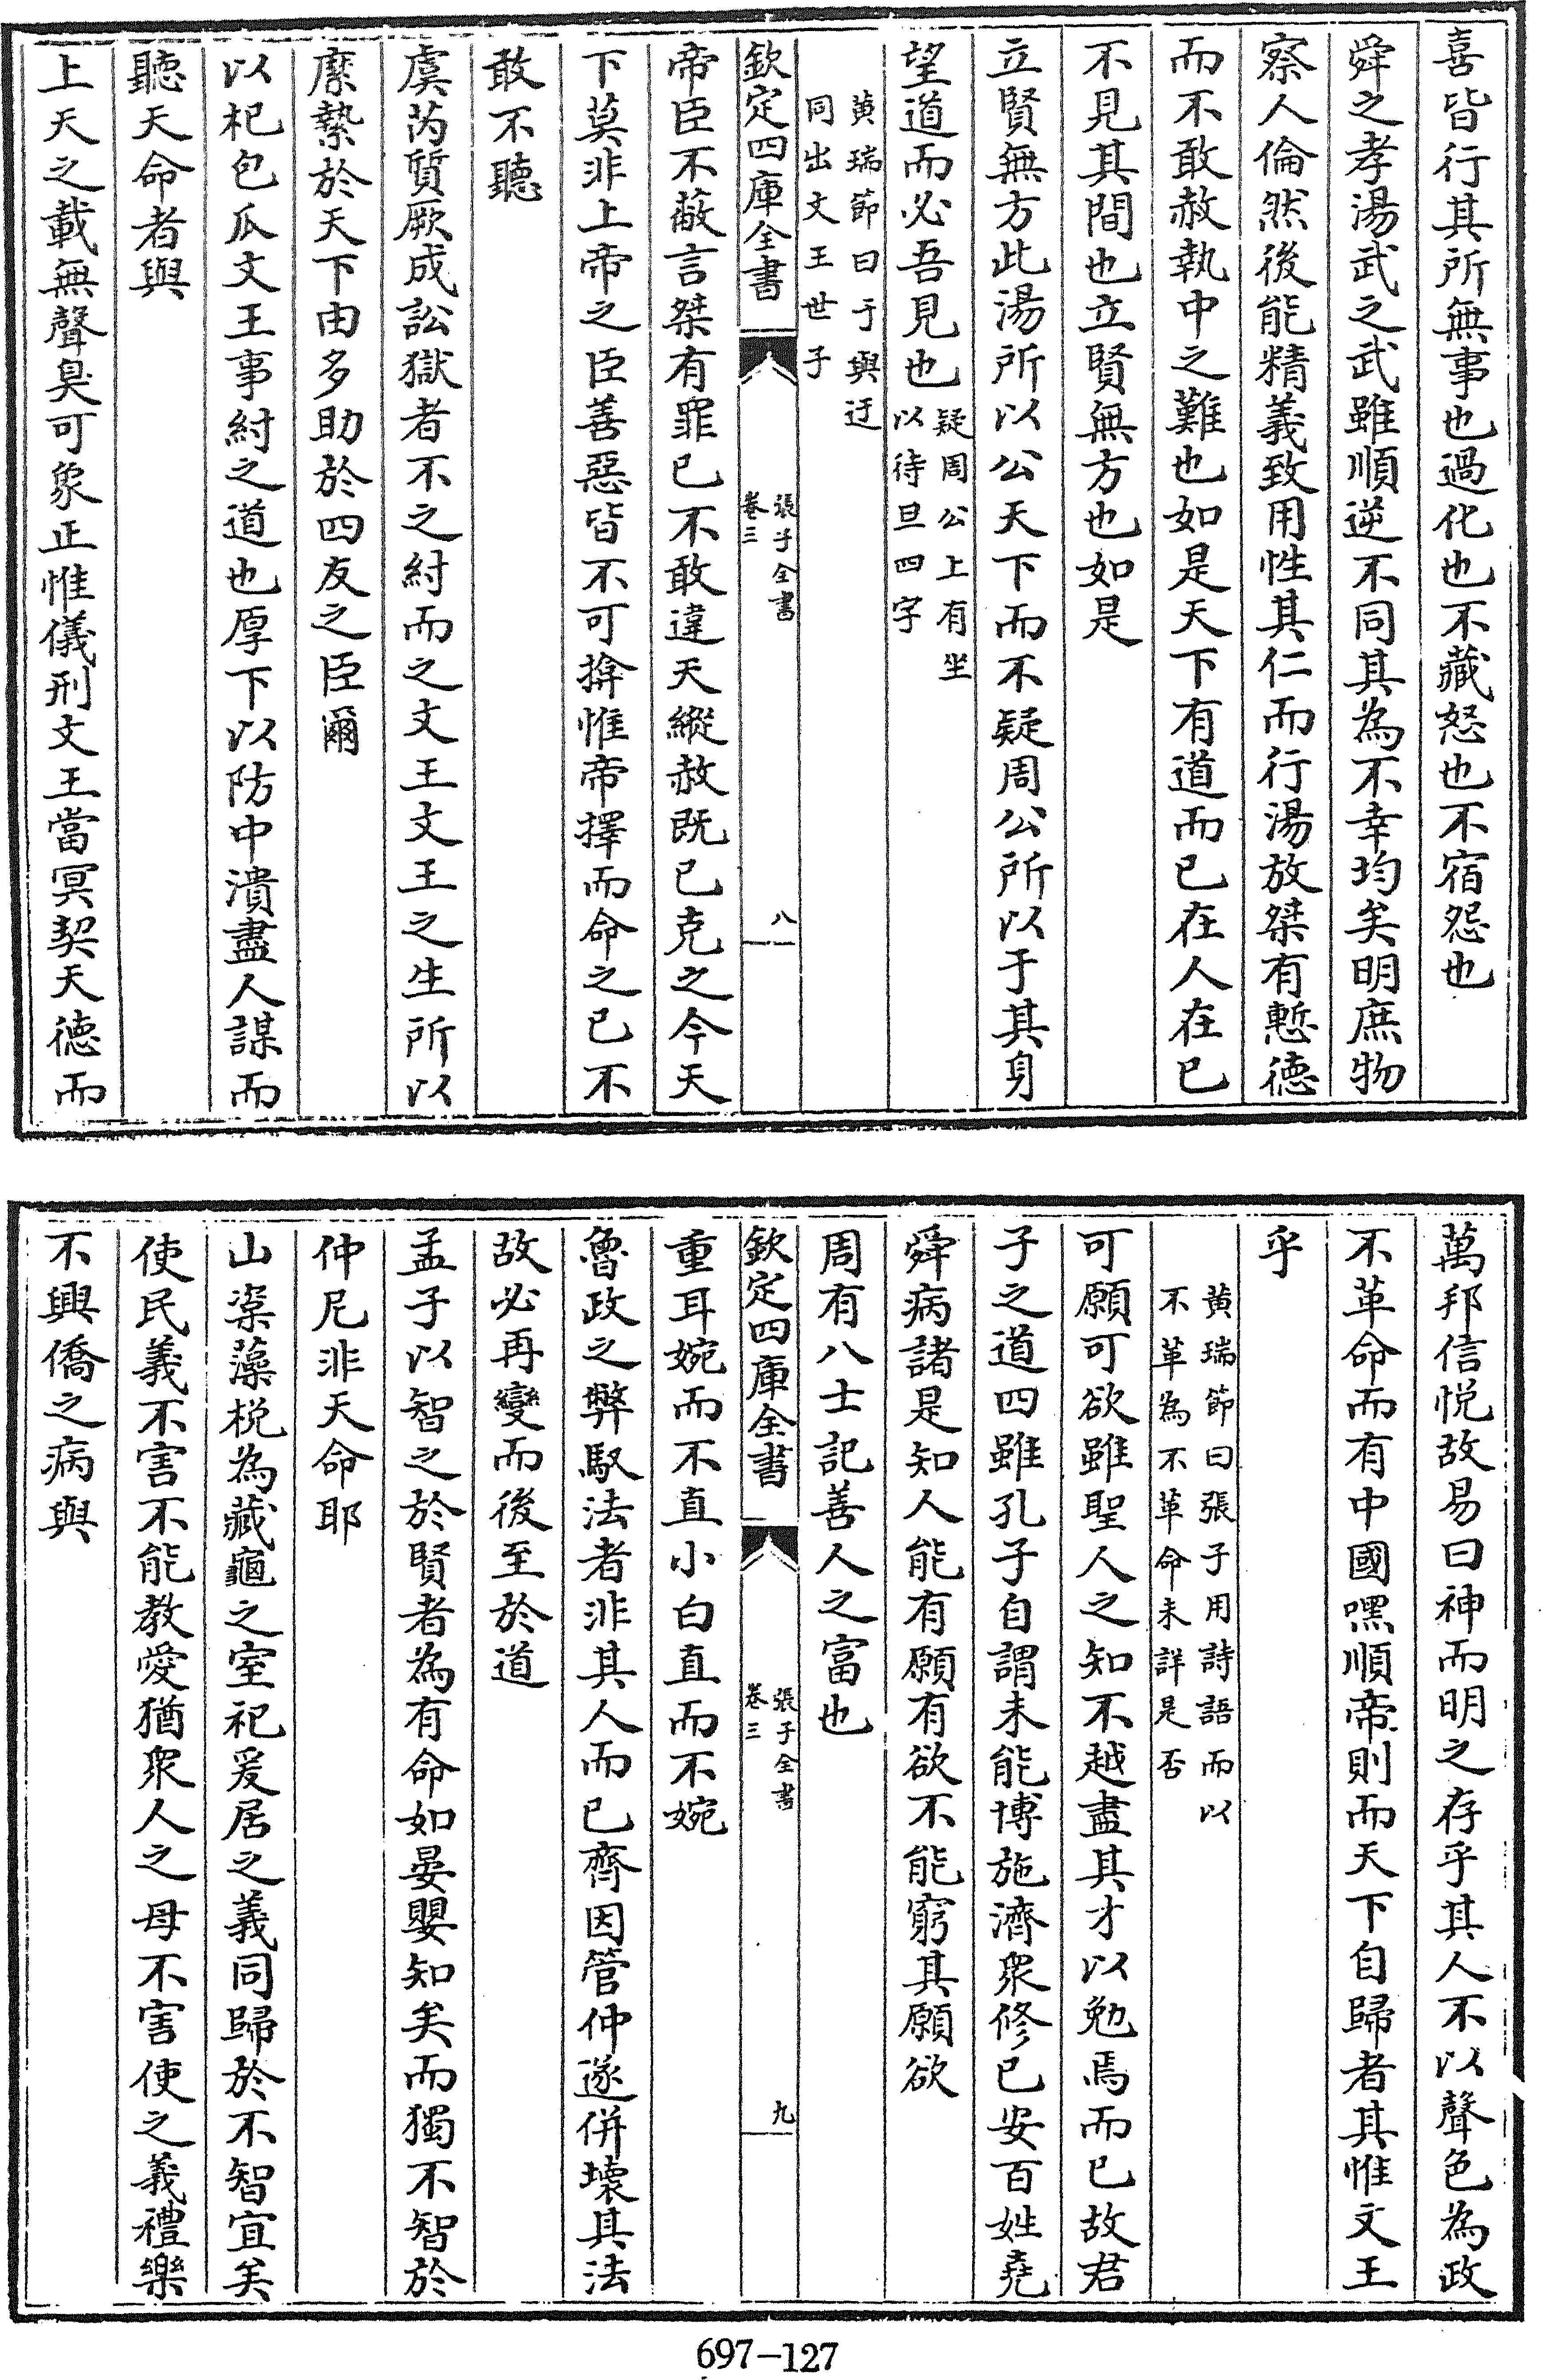 喜皆行其所無事也過化也不藏怒也不宿怨也
舜之孝湯武之武雖順逆不同其為不幸均矣明庶物
察人倫然後能精義致用性其仁而行湯放桀有慙徳
而不敢赦執中之難也如是天下有道而已在人在已
不見其間也立賢無方也如是
立賢無方此湯所以公天下而不疑周公所以于其身
望道而必吾見也疑周公上有坐
以待旦四字
黄瑞節曰于與迂
同出文王世子
欽定四庫全書
張子全書
卷三
八
帝臣不蔽言桀有罪已不敢違天縱赦既已克之今天
下莫非上帝之臣善惡皆不可揜惟帝擇而命之已不
敢不聽
虞芮質厥成訟獄者不之紂而之文王文王之生所以
縻縶於天下由多助於四友之臣爾
以杞包瓜文王事紂之道也厚下以防中潰盡人謀而
聽天命者與
上天之載無聲臭可象正惟儀刑文王當冥契天徳而
萬邦信悦故易曰神而明之存乎其人不以聲色為政
不革命而有中國嘿順帝則而天下自歸者其惟文王
乎
黄瑞節曰張子用詩語而以
不革為不革命未詳是否
可願可欲雖聖人之知不越盡其才以勉焉而已故君
子之道四雖孔子自謂未能博施濟衆修已安百姓堯
舜病諸是知人能有願有欲不能窮其願欲
周有八士記善人之富也
欽定四庫全書
張子全書
卷三
九
重耳婉而不直小白直而不婉
魯政之弊馭法者非其人而已齊因管仲遂併壞其法
故必再變而後至於道
孟子以智之於賢者為有命如晏嬰知矣而獨不智於
仲尼非天命耶
山楶藻梲為藏龜之室祀爰居之義同歸於不智宜矣
使民義不害不能教愛猶衆人之母不害使之義禮樂
不興僑之病與
697-127